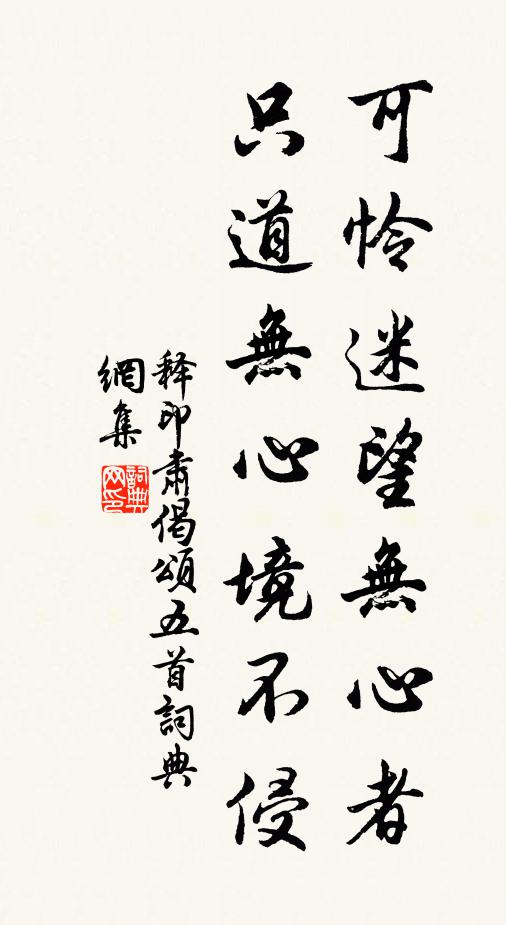 可怜迷望無心者
只道無心境不侵
释印肅偈頌五首詞典
網集
詞典
网印